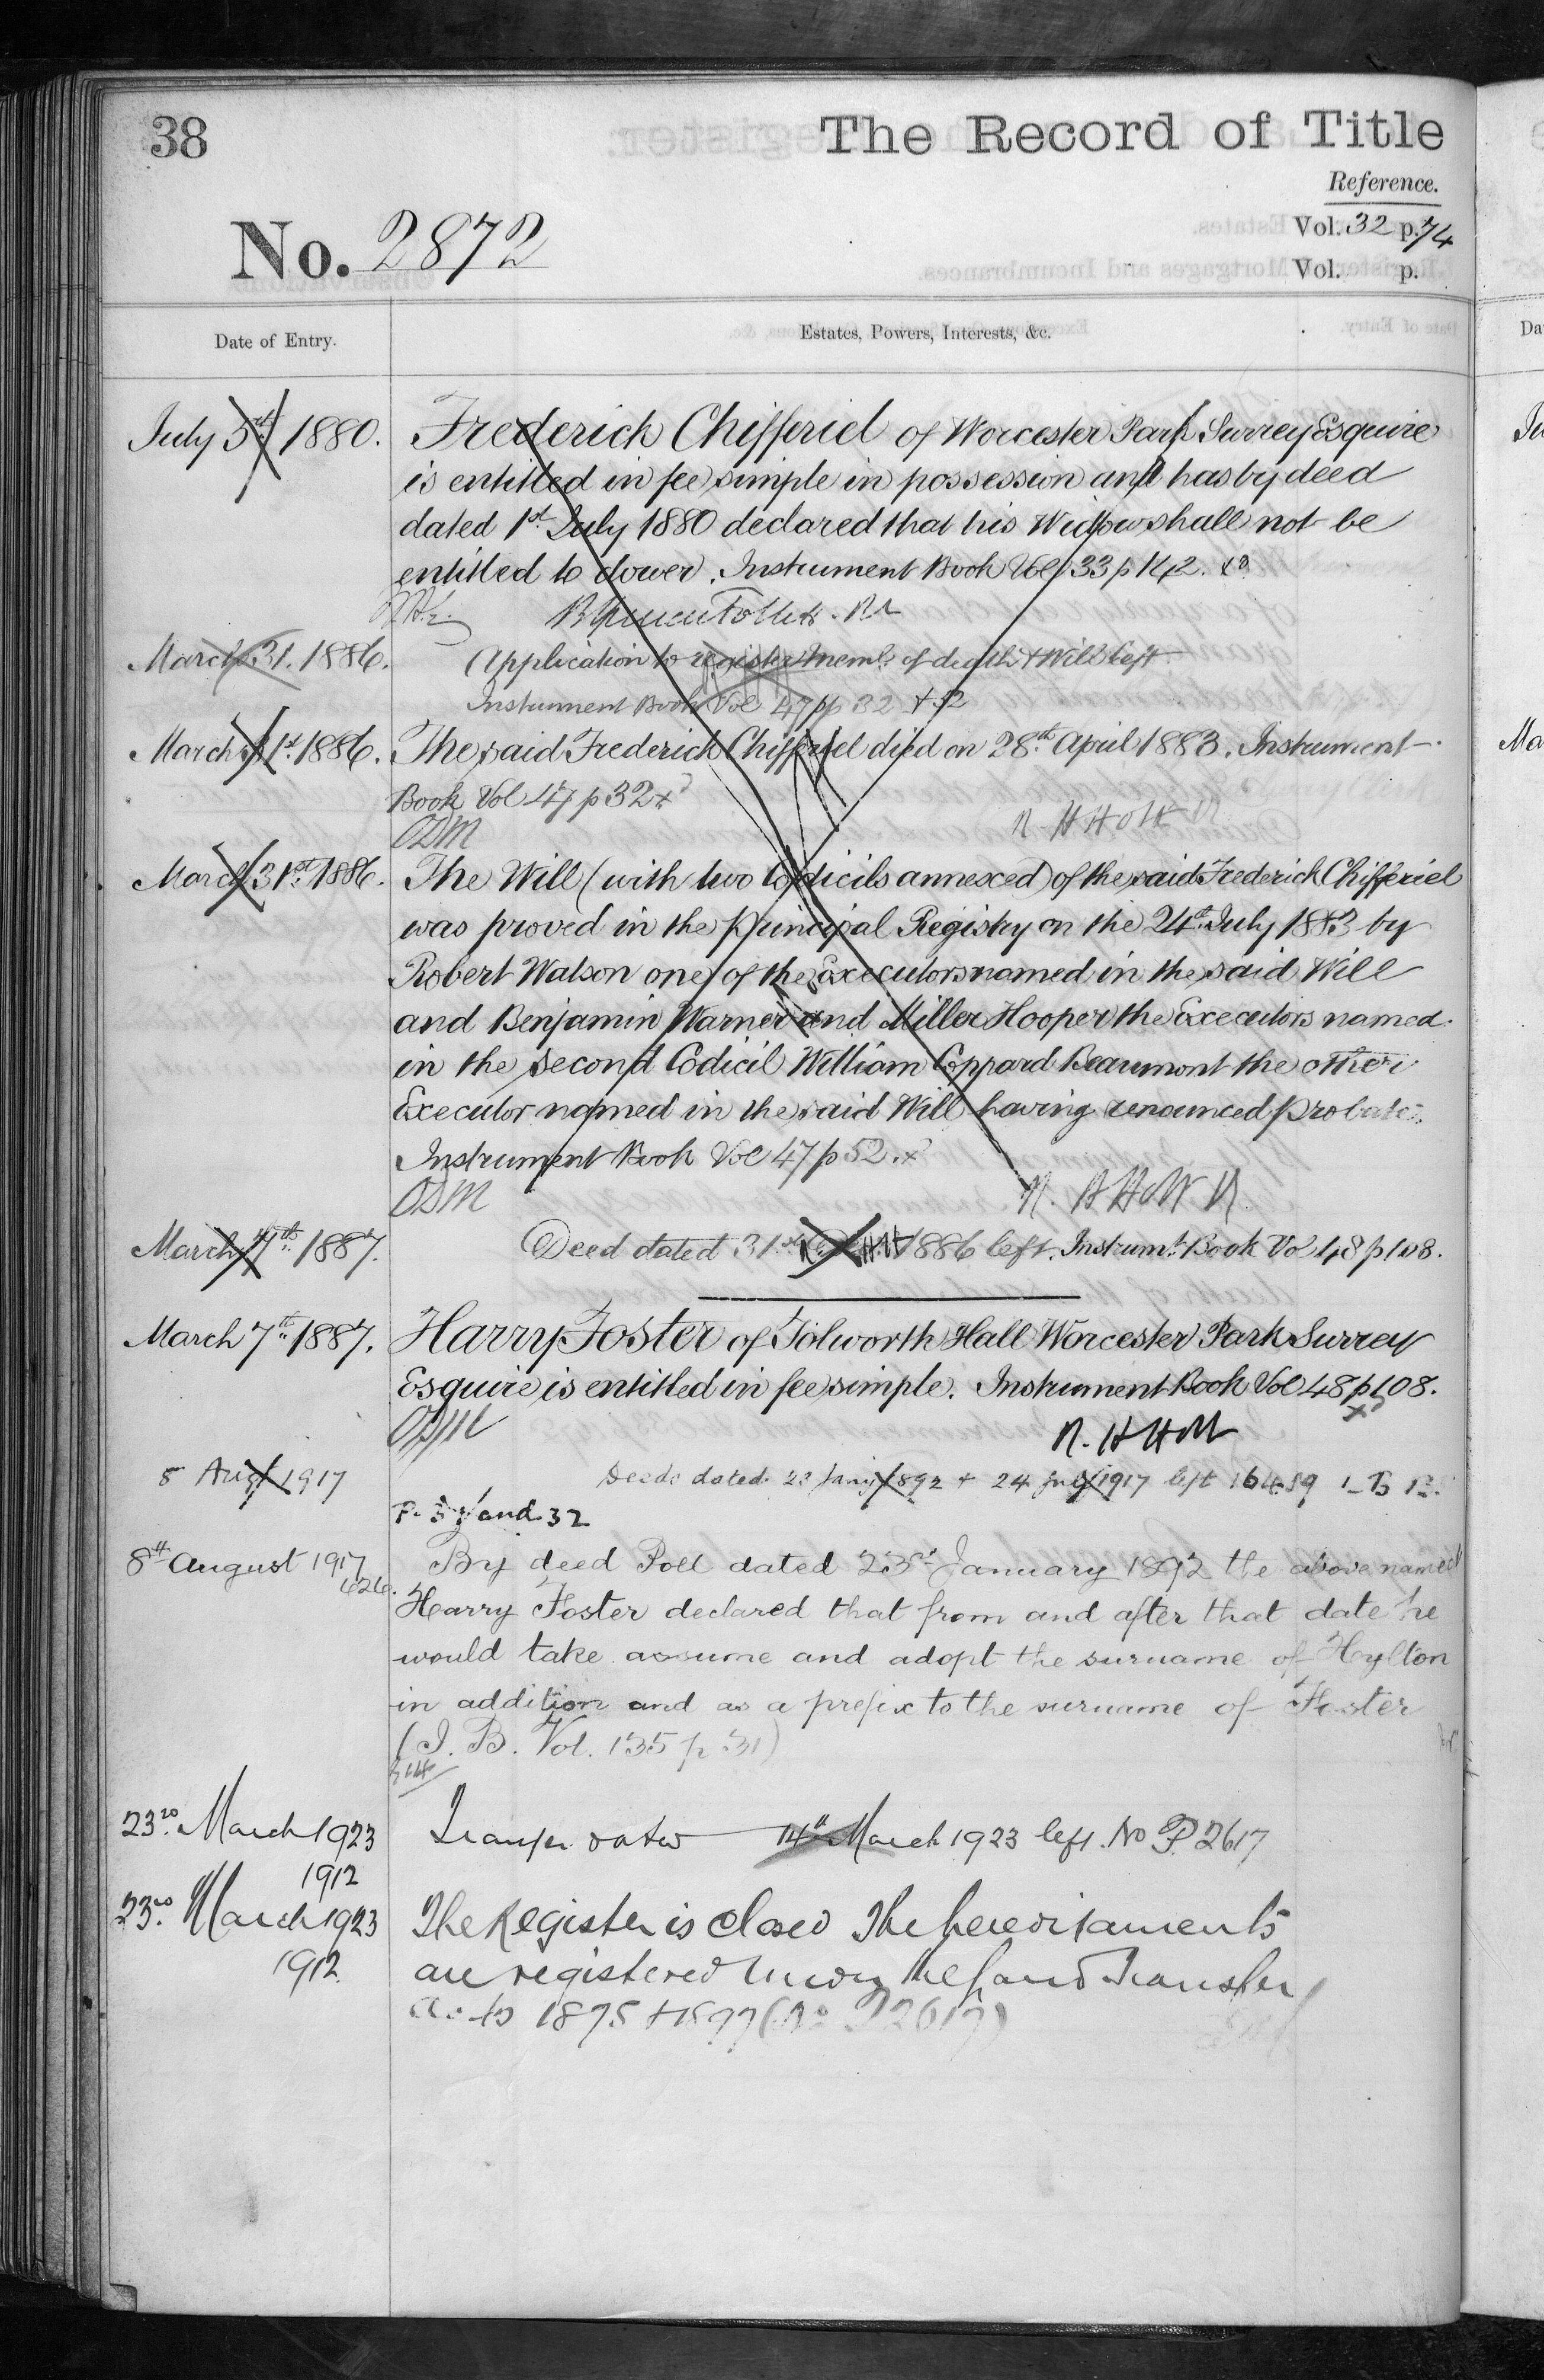 38
The Record of Title
Reference.
No. 2872
Vol. 32 p. 74
Vol. p.
Date of Entry.
Estates, Powers, Interests, &c.
July 5th 1880. Frederick Chifferiel of Worcester Park Surrey Esquire
is entitled in fee simple in possession and has by deed
dated 1st July 1880 declared that his Widow shall not be
entitled to dower. Instrument Book Vol 33 p 142.
March 31. 1886. Application to register Meml. of death & Will left
Instrument Book Vol 47 pp 32 & 52
March 31st 1886. The said Frederick Chifferiel died on 28th April 1883. Instrument
Book Vol 47 p 32
ODM R. H Holt R
March 31st 1886. The Will (with two Codicils annexed) of the said Frederick Chifferiel
was proved in the Principal Registry on the 24th July 1883 by
Robert Watson one of the Executors named in the said Will
and Benjamin Warner and Miller Hooper the Executors named
in the second Codicil William Coppard Beaumont the other
Executor named in the said Will having renounced probate.
Instrument Book Vol 47 p 52.
ODM R. H Holt R
March 7th 1887. Deed dated 31st 1886 left. Instrumt. Book Vol 48 p 108.
March 7th 1887. Harry Foster of Tolworth Hall Worcester Park Surrey
Esquire is entitled in fee simple. Instrument Book Vol 48 p 108.
ODM R. H Holt
8 Augt 1917 Deeds dated 23 Jany 1892 & 24 July 1917 left
and 32
8th August 1917 By deed Poll dated 23rd January 1892 the above named
Harry Foster declared that from and after that date he
would take assume and adopt the surname of Hylton
in addition and as a prefix to the surname of Foster
(I. B. Vol. 135 p 31)
23rd March 1923 Transfer dated 14th March 1923 left. No P. 2617
1912
23rd March 1923 The Register is closed The hereditaments
1912 are registered under the Land Transfer
Acts 1875 & 1897 (No P 2617)